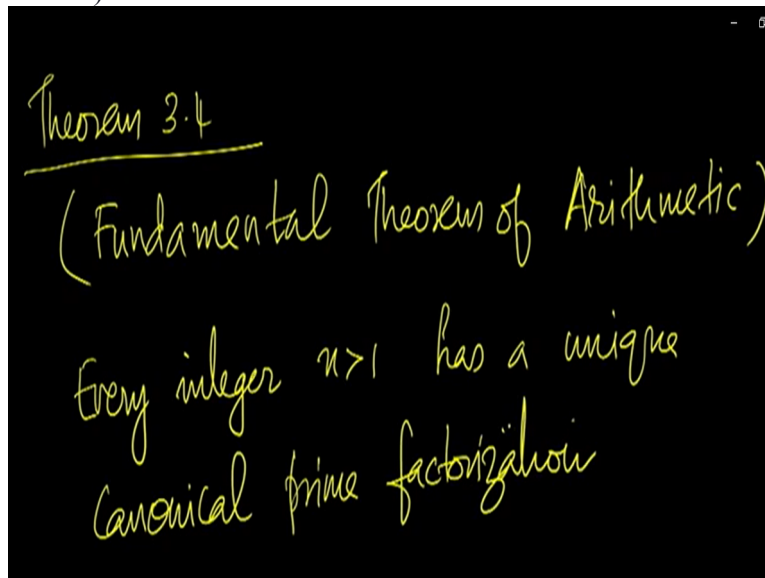 Theorem 3.4
(Fundamental Theorem of Arithmetic)
Every integer n>1 has a unique
Canonical prime factorization